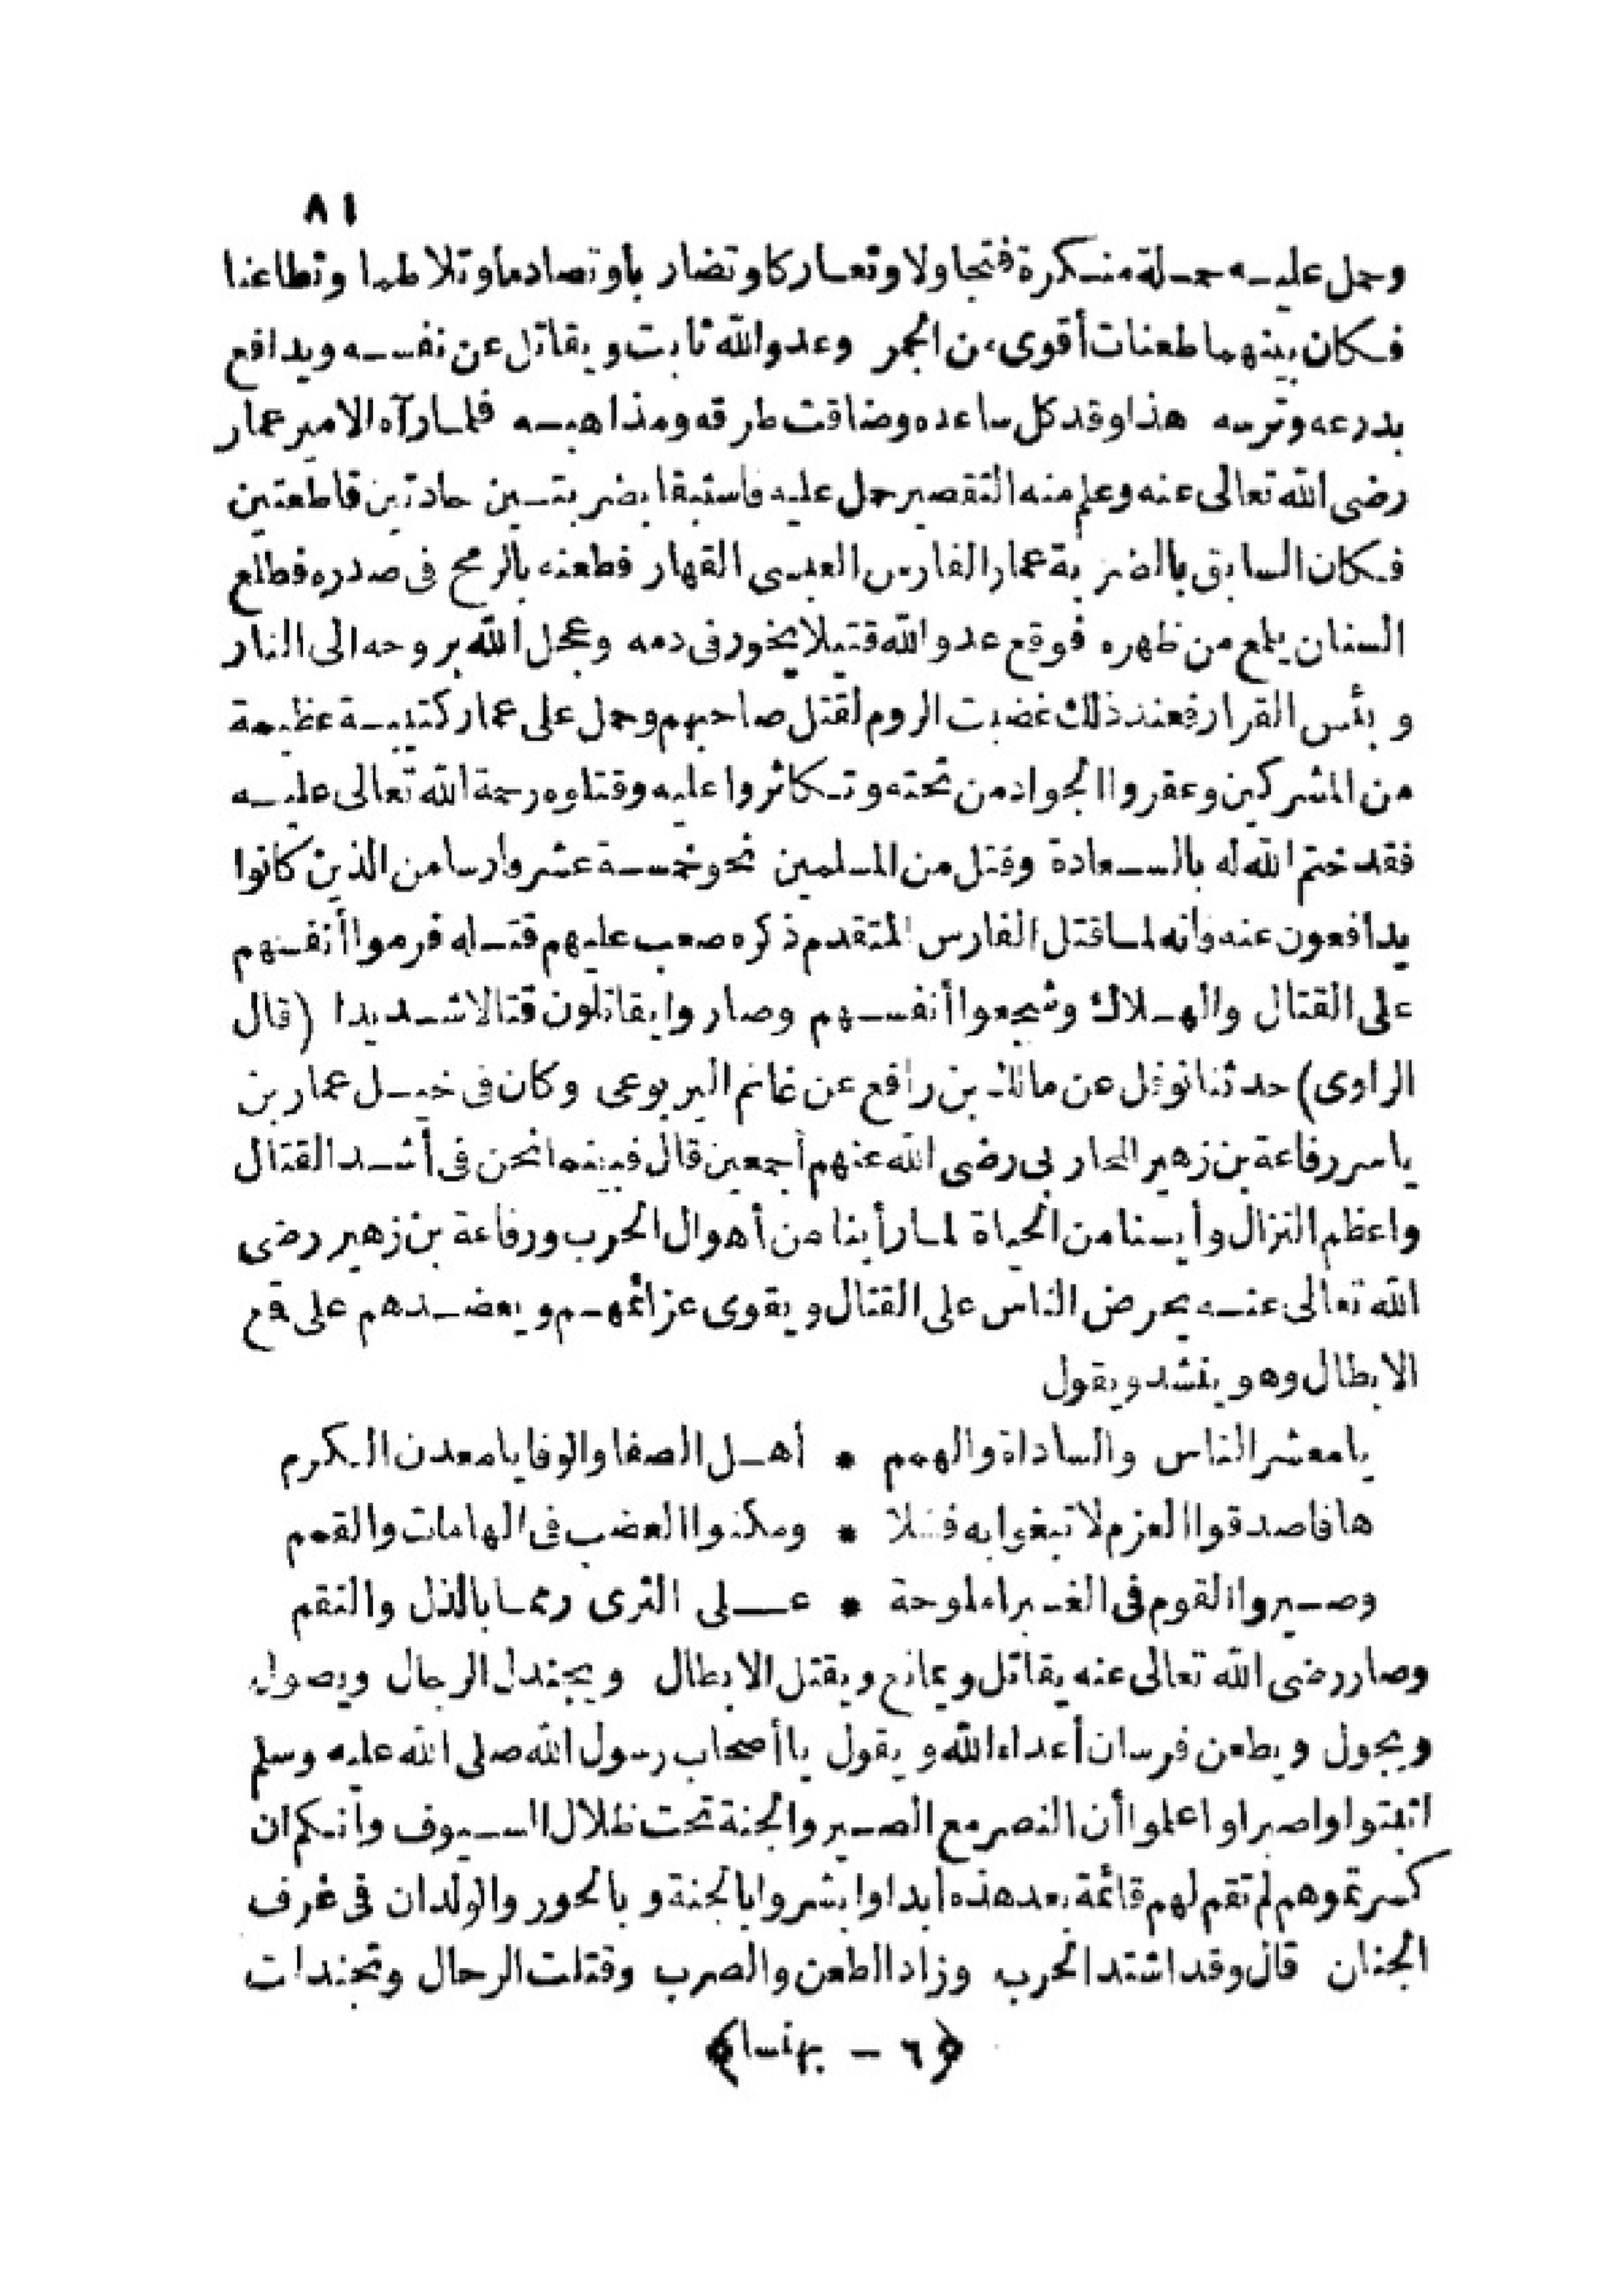 ٨١
وحمل عليه حملة منكرة فتجاولا وتعاركا وتضاربا وتصادما وتلاطما وتطاعنا
فكان بينهما طعنات أقوى من الجمر وعدو الله ثابت ويقاتل عن نفسه ويدافع
بدرعه وترسه هذا وقد كل ساعده وضاقت طرقه ومذاهبه فلما رآه الامير عمار
رضى الله تعالى عنه وعلم منه التقصير حمل عليه فاستبقا بضربتين حادتين قاطعتين
فكان السابق بالضربة عمار الفارس العبسى القهار فطعنه بالرمح فى صدره فطلع
السنان يلمع من ظهره فوقع عدو الله قتيلا يخور فى دمه وعجل الله بروحه الى النار
وبئس القرار فعند ذلك غضبت الروم لقتل صاحبهم وحمل على عمار كتيبة عظيمة
من المشركين وعقروا الجواد من تحته وتكاثروا عليه وقتلوه رحمة الله تعالى عليه
فقد ختم الله له بالسعادة وقتل من المسلمين نحو خمسة عشر فارسا من الذين كانوا
يدافعون عنه وأنه لما قتل الفارس المتقدم ذكره صعب عليهم قتله فرموا أنفسهم
على القتال والهلاك وشجعوا أنفسهم وصاروا يقاتلون قتالا شديدا (قال
الراوى) حدثنا نوفل عن مالك بن رافع عن غانم اليربوعى وكان فى خيل عمار بن
ياسر رفاعة بن زهير المحاربى رضى الله عنهم أجمعين قال فبينما نحن فى أشد القتال
واعظم النزال وأيسنا من الحياة لما رأينا من أهوال الحرب ورفاعة بن زهير رضى
الله تعالى عنه يحرض الناس على القتال ويقوى عزائمهم ويعضدهم على قع
الابطال وهو ينشد ويقول
يا معشر الناس والساداة والهمم * أهل الصفا والوفا يا معدن الكرم
ها فاصدقوا العزم لا تبغوا به فشلا * ومكنوا العضب فى الهامات والقمم
وصيروا القوم فى الغبرا ملوحة * على الثرى رمما بالذل والنقم
وصار رضى الله تعالى عنه يقاتل ويمانع ويقتل الابطال ويجندل الرجال ويصول
ويجول ويطعن فرسان أعداء الله ويقول يا أصحاب رسول الله صلى الله عليه وسلم
اثبتوا واصبروا واعلموا أن النصر مع الصبر والجنة تحت ظلال السيوف وأنكم ان
كسرتموهم لم تقم لهم قائمة بعد هذه أبدا وابشروا بالجنة وبالحور والولدان فى غرف
الجنان قال وقد اشتد الحرب وزاد الطعن والضرب وقتلت الرجال وتجندلت
﴿٦ – بهنسا﴾